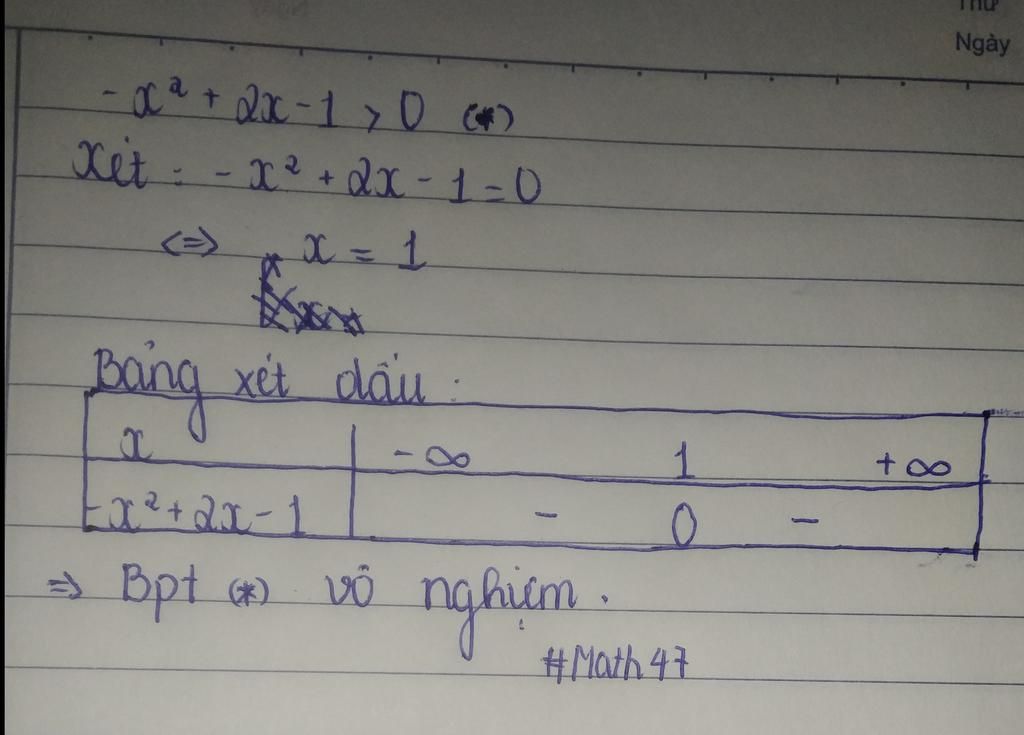 Thứ
Ngày
-x² + 2x - 1 > 0 (*)
Xét: -x² + 2x - 1 = 0
<=> x = 1
Bảng xét dấu:
x -∞ 1 +∞
-x² + 2x - 1 - 0 -
=> Bpt (*) vô nghiệm.
#Math47